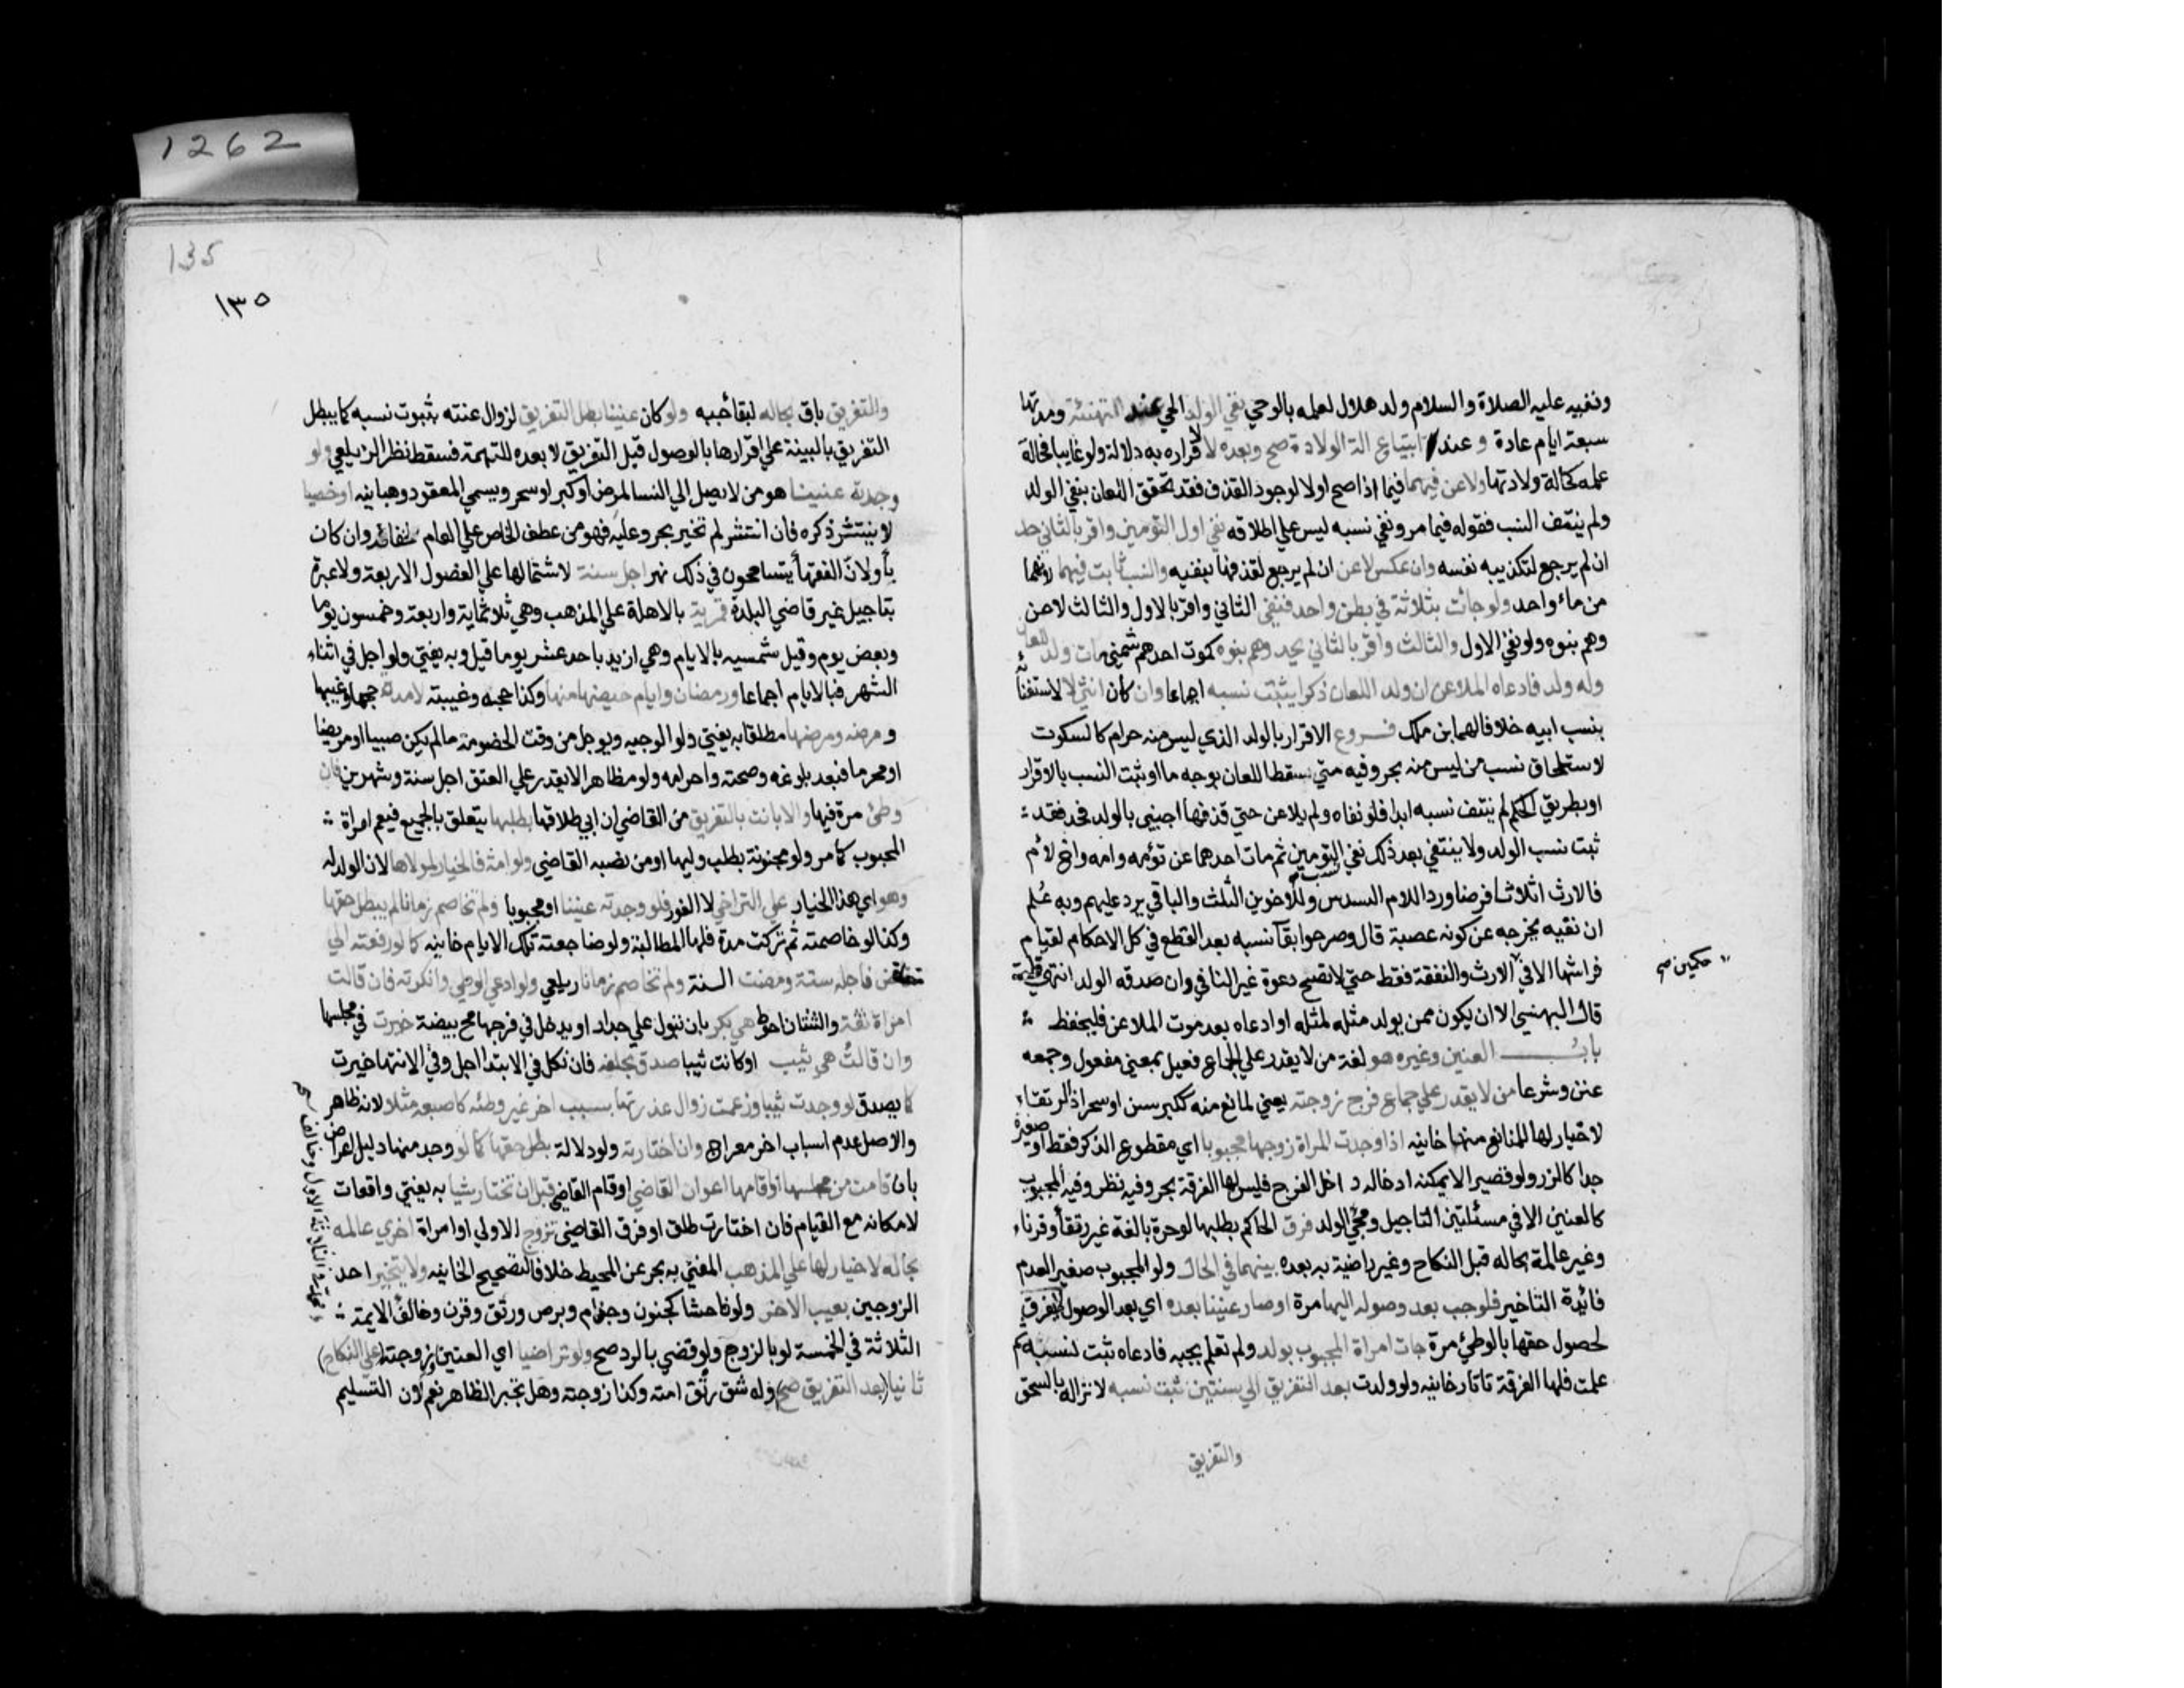 ونفيه عليه الصلاة والسلام ولد هلال لعلمه بالوحي نفي الولد الحي عند التهنئة ومدتها
سبعة ايام عادة وعند ابتياع الة الولادة صح وبعده لا لاقراره به دلالة ولو غايبا فحالة
علمه كحالة ولادتها ولاعن فيهما فيما اذا صح اولا لوجود القذف فقد تحقق اللعان بنفي الولد
ولم ينتف النسب فقوله فيما مر ونفي نسبه ليس علي اطلاقه نفي اول التومين واقر بالثاني حد
ان لم يرجع لتكذيبه نفسه وان عكس لاعن ان لم يرجع لقذفها بنفيه والنسب ثابت فيهما لانهما
من ماء واحد ولو جائت بثلاثة في بطن واحد فنفي الثاني واقر بالاول والثالث لاعن
وهم بنوه ولو نفي الاول والثالث واقر بالثاني يحد وهم بنوه كموت احدهم شمني مات ولد اللعان
وله ولد فادعاه الملاعن ان ولد اللعان ذكرا يثبت نسبه اجماعا وان كان انثي لا لاستغنائه
بنسب ابيه خلافا لهما ابن ملك فروع الاقرار بالولد الذي ليس منه حرام كالسكوت
لاستلحاق نسب من ليس منه بحر وفيه متي سقط اللعان بوجه ما او ثبت النسب بالاقرار
او بطريق الحكم لم ينتف نسبه ابدا فلو نفاه ولم يلاعن حتي قذفها اجنبي بالولد فحد فقد
ثبت نسب الولد ولا ينتفي بعد ذلك نفي نسب التومين ثم مات احدهما عن تؤمه وامه واخ لام
فالارث اثلاثا فرضا وردا للام السدس وللاخوين الثلث والباقي يرد عليهم وبه علم
ان نفيه يخرجه عن كونه عصبة قال وصرحوا بقآ نسبه بعد القطع في كل الاحكام لقيام
فراشها الا في حكمين صح الارث والنفقة فقط حتي لا تصح دعوة غير النافي وان صدقه الولد انتهي قلت
قال البهنسي الا ان يكون ممن يولد مثله لمثله او ادعاه بعد موت الملاعن فليحفظ
باب العنين وغيره هو لغة من لا يقدر علي الجماع فعيل بمعني مفعول وجمعه
عنن وشرعا من لا يقدر علي جماع فرج زوجته يعني لمانع منه ككبر سن او سحر اذ الرتقاء
لا خيار لها للمانع منها خانيه اذا وجدت المراة زوجها مجبوبا اي مقطوع الذكر فقط او صغيره
جدا كالزر ولو قصير الا يمكنه ادخاله داخل الفرج فليس لها الفرقة بحر وفيه نظر وفيه المجبوب
كالعنين الا في مسئلتين التاجيل ومجي الولد فرق الحاكم بطلبها لو حرة بالغة غير رتقاء وقرناء
وغير عالمة بحاله قبل النكاح وغير راضية به بعده بينهما في الحال ولو المجبوب صغير العدم
فائدة التاخير فلو جب بعد وصوله اليها مرة او صار عنينا بعده اي بعد الوصول لا يفرق
لحصول حقها بالوطئ مرة جات امراة المجبوب بولد ولم تعلم بجبه فادعاه ثبت نسبه ثم
علمت فلها الفرقة تاتارخانيه ولو ولدت بعد التفريق الي سنتين ثبت نسبه لانزاله بالسحق
والتفريق
135
١٣٥
1262
والتفريق باق بحاله لبقا جبه ولو كان عنينا بطل التفريق لزوال عنته بثبوت نسبه كما يبطل
التفريق بالبينة علي اقرارها بالوصول قبل التفريق لا بعده للتهمة فسقط نظر الزيلعي ولو
وجدته عنينا هو من لا يصل الي النسا لمرض او كبر او سحر ويسمي المعقود وهبانيه او خصيا
لا ينتشر ذكره فان انتشر لم تخير بحر وعليه فهو من عطف الخاص علي العام وان كان
باو لان الفقها يتسامحون في ذلك نهر اجل سنة لاشتمالها علي الفصول الاربعة ولا عبرة
بتاجيل غير قاضي البلدة قمرية بالاهلة علي المذهب وهي ثلاثماية واربعة وخمسون يوما
وبعض يوم وقيل شمسيه بالايام وهي ازيد باحد عشر يوما قيل وبه يفتي ولو اجل في اثناء
الشهر فبالايام اجماعا ورمضان وايام حيضها منها وكذا حجه وغيبته لا مدة حجها وغيبتها
ومرضه ومرضها مطلقا به يفتي ولوالوجيه ويوجل من وقت الخصومة ما لم يكن صبيا او مريضا
او محرما فبعد بلوغه وصحته واحرامه ولو مظاهرا لا يقدر علي العتق اجل سنة وشهرين فان
وطئ مرة فيها والا بانت بالتفريق من القاضي ان ابي طلاقها بطلبها يتعلق بالجميع فيعم امراة
المجبوب كما مر ولو مجنونة بطلب وليها او من نصبه القاضي ولو امة فالخيار لمولاها لان الولد له
وهو اي هذا الخيار علي التراخي لا الفور فلو وجدته عنينا او مجبوبا ولم تخاصم زمانا لم يبطل حقها
وكذا لو خاصمته ثم تركت مدة فلها المطالبة ولو ضاجعته تلك الايام خانيه كما لو رفعته الي
قاض فاجله سنة ومضت السنة ولم تخاصم زمانا زيلعي ولو ادعي الوطي وانكرته فان قالت
امراة ثقة والثنتان احوط هي بكر بان تبول علي جدار او يدخل في فرجها مح بيضة خيرت في مجلسها
وان قالت هي ثيب او كانت ثيبا صدق بحلفه فان نكل في الابتدا اجل وفي الانتها خيرت
كما يصدق لو وجدت ثيبا وزعمت زوال عذرتها بسبب اخر غير وطئه كاصبعه مثلا لانه ظاهر
والاصل عدم اسباب اخر معراج وان اختارته ولو دلالة بطل حقها كما لو وجد منها دليل اعراض
بان قامت من مجلسها او اقامها اعوان القاضي او قام القاضي قبل ان تختار شيئا به يفتي واقعات
لامكانه مع القيام فان اختارت طلق او فرق القاضي تزوج الاولي او امراة اخري عالمة
بحاله لا خيار لها علي المذهب المفتي به بحر عن المحيط خلافا لتصحيح الخانيه ولا يتخير احد
الزوجين بعيب الاخر ولو فاحشا كجنون وجذام وبرص ورتق وقرن وخالف الايمة
الثلاثة في الخمسة لو بالزوج ولو قضي بالرد صح ولو تراضيا اي العنين وزوجته علي النكاح
ثانيا (بعد التفريق صح) وله شق رتق امته وكذا زوجته وهل تجبر الظاهر نعم لان التسليم